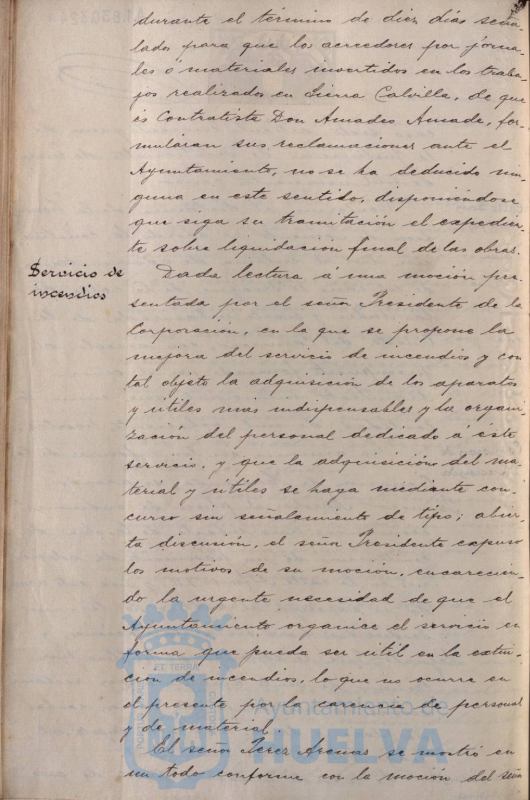 durante el término de diez días seña-
lados para que los acreedores por jorna-
les ó materiales invertidos en los traba-
jos realizados en Sierra Calvilla, de que
es Contratista Don Amadeo Amade, for-
mularan sus reclamaciones ante el
Ayuntamiento, no se ha deducido nin-
guna en este sentido, disponiéndose
que siga su tramitación el expedien-
te sobre liquidación final de las obras.
Servicio de
incendios
Dada lectura á una moción pre-
sentada por el señor Presidente de la
Corporación, en la que se propone la
mejora del servicio de incendios y con
tal objeto la adquisición de los aparatos
y útiles mas indispensables y la organi-
zación del personal dedicado á este
servicio, y que la adquisición del ma-
terial y útiles se haga mediante con-
curso sin señalamiento de tipo; abier-
ta discusión, el señor Presidente expuso
los motivos de su moción, encarecien-
do la urgente necesidad de que el
Ayuntamiento organice el servicio en
forma que pueda ser útil en la extin-
ción de incendios, lo que no ocurre en
el presente por la carencia de personal
y de material.
El señor Pérez Arenas se mostró en
un todo conforme con la moción del señor
ET TERRA
Ayuntamiento de
HUELVA